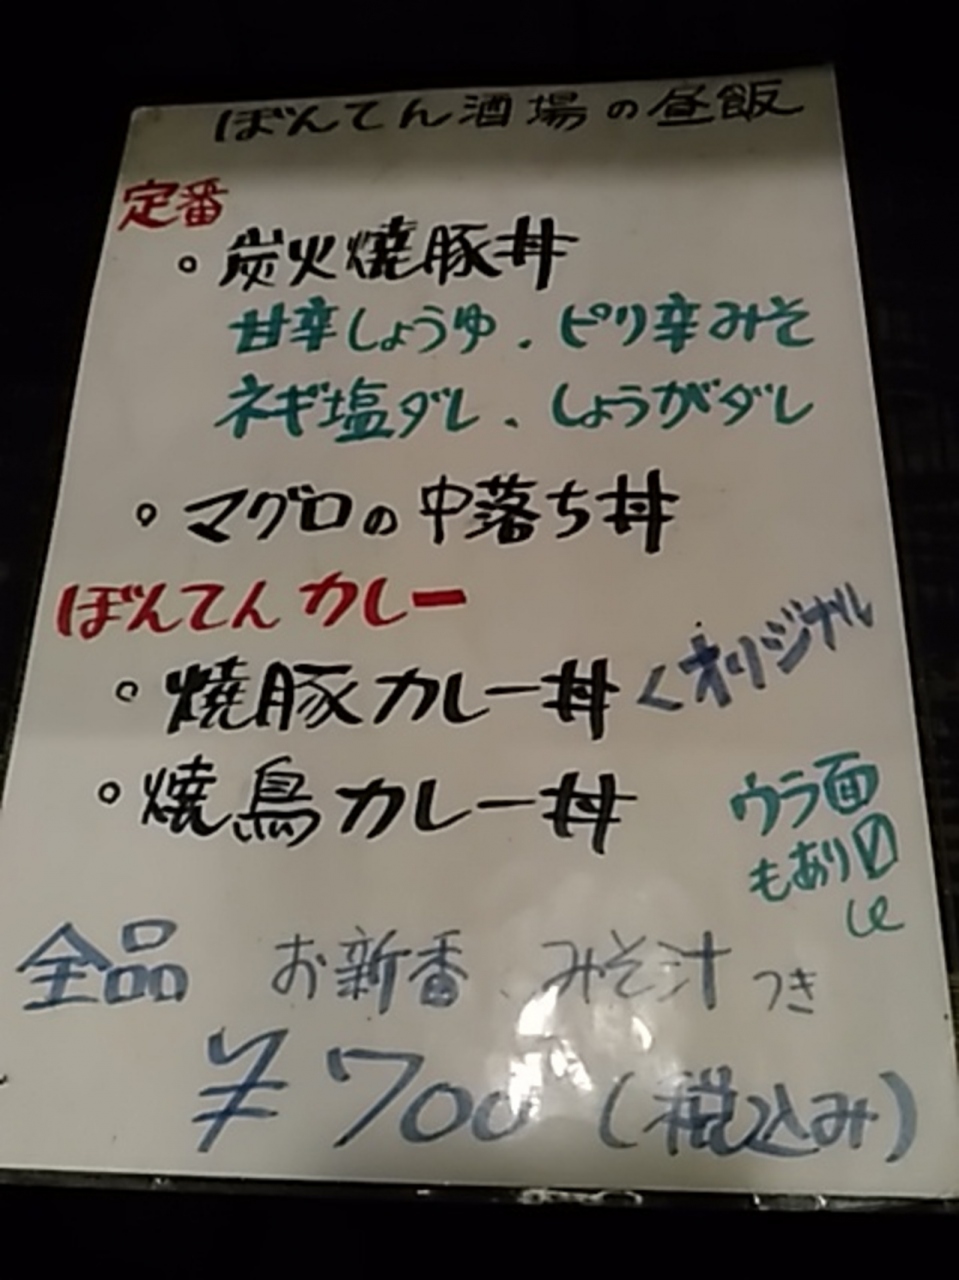 ぼんてん酒場の昼飯
定番
○炭火焼豚丼
甘辛しょうゆ、ピリ辛みそ
ネギ塩ダレ、しょうがダレ
○マグロの中落ち丼
ぼんてんカレー
○焼豚カレー丼 <オリジナル
○焼鳥カレー丼
ウラ面
もあり〼
全品 お新香、みそ汁つき
¥700(税込み)